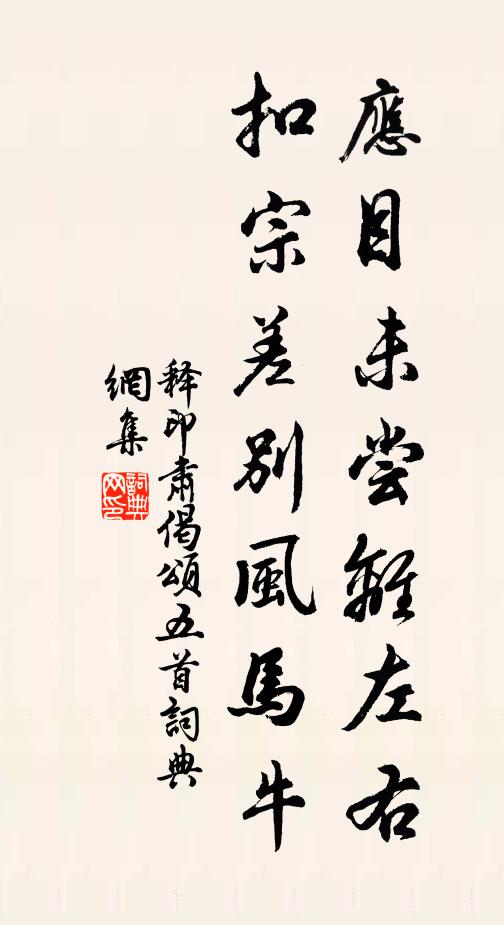 應目未嘗離左右
扣宗差別風馬牛
释印肅偈頌五首詞典
網集
詞典网印